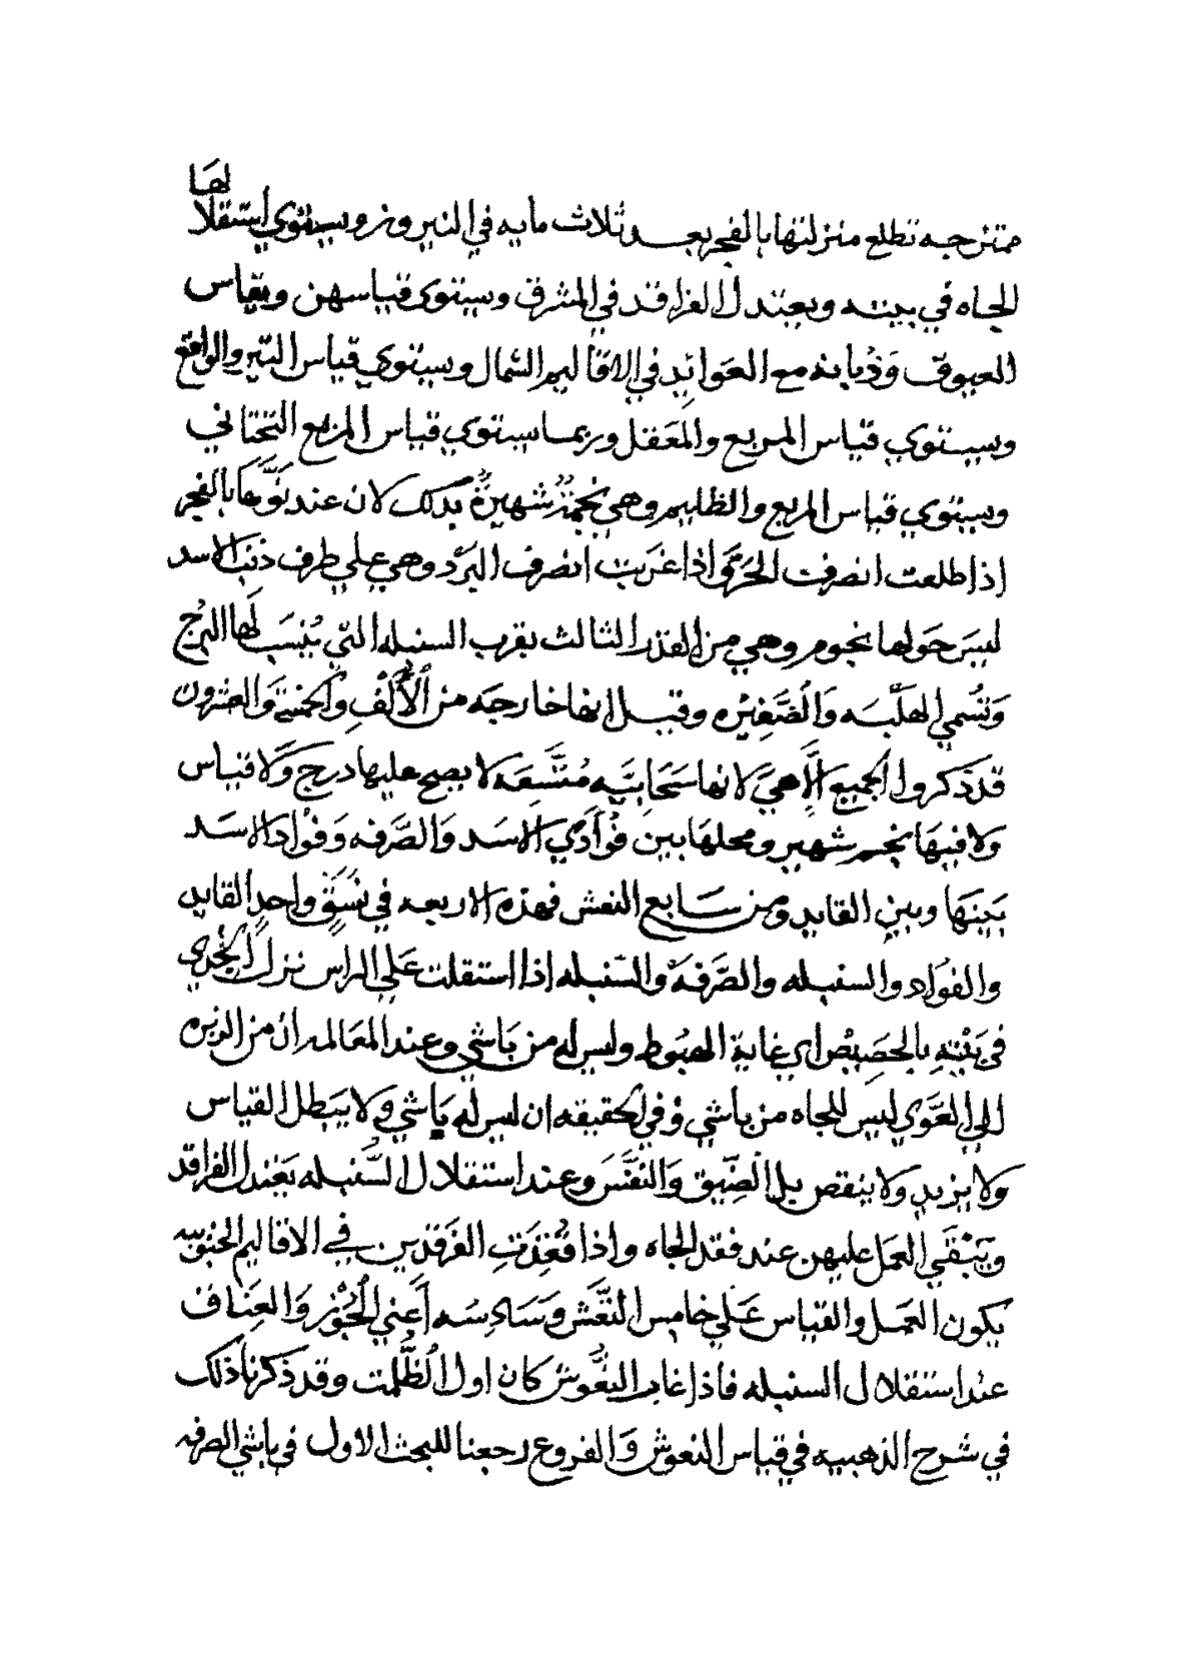 ممتزجه تطلع منزلتها بالفجر بعد ثلاث مايه في النيروز ويستوي استقلالها
الجاه في بيته ويعتدل الفراقد في المشرق ويستوى قياسهن ويقاس
العيوق وَذُبانه مع العَوائِدِ في الاقاليم الشمال ويستوي قياس التير والواقع
ويستوي قياس المربع والمَعَقل وربما يستوي قياس المربع التَحَتاني
ويستوي قياس المربع والظليم وهي نجمةٌ شهيرةٌ بذلك لان عند نَوِّها بالفجر
اذا طلعت انصرفت الحَرّ واذا غرَبت انصرف البَرْد وهي علي طرف ذنب الاسد
ليسَ حَولها نجوم وهي من القدر الثالث بقرب السنبله التي يُنسَبَ لَها البُرجُ
وَتُسمي الهَلَّبَه وَالضَّغِيْرَه وقيل انها خارجَه من الأَلْفِ وَالخمسَة وَالعشرون
قد ذَكروا الجميع اِلَّا هيَ لانها سَحَابيَّه مُتَّسِعَه لا يصح عليها درج وَلَا قياس
ولا فيهَا نجم شهير ومحلهَا بينَ فُوَأدَي الاسَد وَالصَّرفه وَفُواد الاسَد
بَينَهَا وبين القايد ومن سَابع النعش فهذه الاربعه في نَسَقٍ واحدٍ القايد
والفوَاد والسنبله والصَّرفَه والسّنبله اذا استقلت عَلي الراس نزل الجُدي
في بَيْتِه بالحَضِيْض اي غاية الهبُوط وليس له من بَاشي وعند المعَالمه ان من الزبره
الي العَوَّي ليس للجاه من باشي وَفي الحقيقه ان ليس له بَاشي ولا يَبطل القياس
ولا يزيد ولا ينقص بل الضِّيق وَالنفَّسَ وعند استقلال السُّنبله يَعتدل الفراقد
ويَبْقَي العمَل عليهن عند فقد الجاه واذا فُقِدَتِ الفَرقدَين في الاقاليم الجنوبيه
يكون العَمل والقياس عَلَي خامس النَّعَش وَسَادِسَه أعني الجُوْن وَالعِنَاف
عند استقلال السنبله فاذا غاب النعُوش كان اول الظُّلمت وقد ذكرنا ذلك
في شرح الذهبيه في قياس النعوش وَالفروع رجعنا للبحث الاول في باشي الصرفه